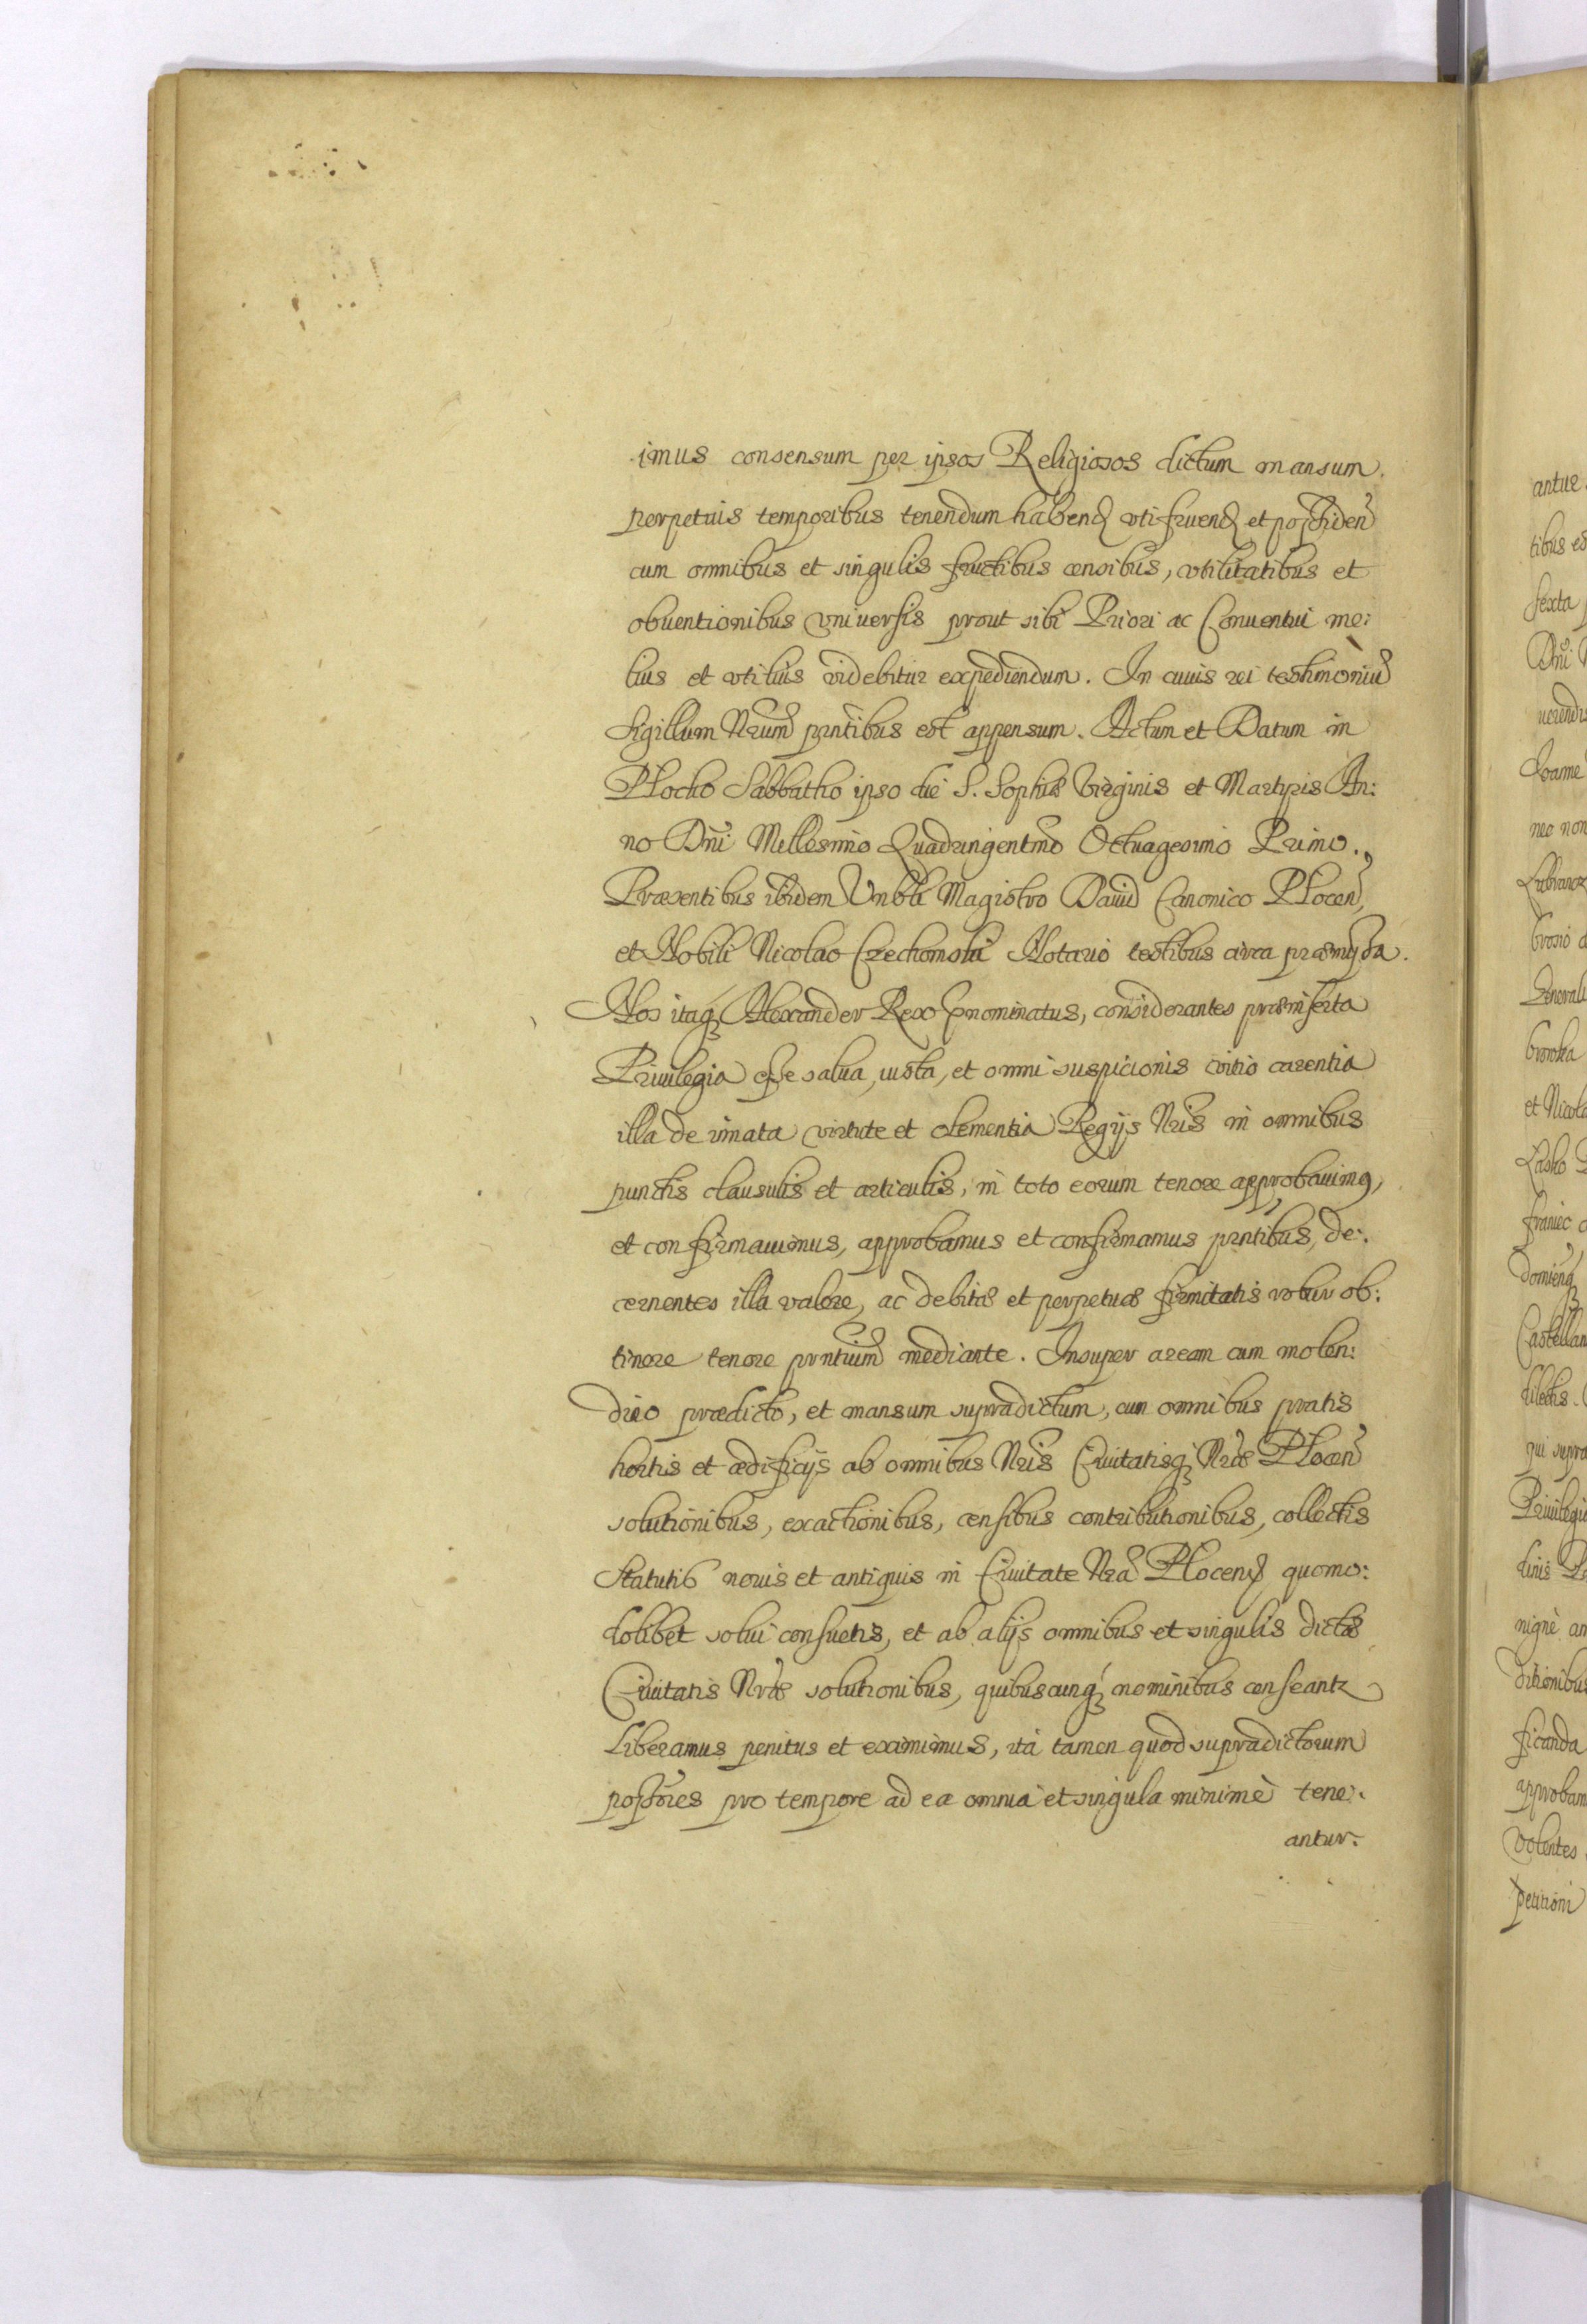 imus consensum per ipsos Religiosos dictum mansum.
perpetuis temporibus tenendum habend vtifruend et possiden
cum omnibus et singulis fructibus censibus, vtilitatibus et
obuentionibus vniuersis prout sibi Priori ac Conuentui me:
lius et vtilius videbitur expediendum. In cuius rei testimoniu
sigillum Nrum prntibus est appensum. Actum et Datum in
Plocko Sabbatho ipso die S. Sophiæ Virginis et Martyris An:
no Dni Millesimo Quadringentmo Octuagesimo Primo.
Præsentibus ibidem Vnbli Magistro Dauid Canonico Plocen,
et Nobili Nicolao Czechomski Notario testibus circa præmissa.
Nos itaq Alexander Rex pnominatus, considerantes præinserta
Priuilegia esse salua, iusta, et omni suspicionis vitio carentia
illa de innata virtute et clementia Regijs Nris in omnibus
punctis clausulis et articulis, in toto eorum tenore approbauimq,
et confirmauimus, approbamus et confirmamus prntibus, de:
cernentes illa valore, ac debitæ et perpetuæ firmitatis robur ob:
tinere tenore prntium mediante. Insuper aream cum molen:
dino prædicto, et mansum supradictum, cum omnibus pratis
hortis et ædificijs ab omnibus Nris Ciuitatisq Nræ Plocen
solutionibus, exactionibus, censibus contributionibus, collectis
statutis nouis et antiquis in Ciuitate Nra Plocens quomo:
dolibet solui consuetis, et ab alijs omnibus et singulis dictæ
Ciuitatis Nræ solutionibus, quibuscunq nominibus censeantr
Liberamus penitus et eximimus, ita tamen quod supradictorum
possores pro tempore ad ea omnia et singula minimè tene:
antur.
antur
tibus
sexta
Dni
Castellan
dilectis
qui supra
Priuilegi
nignè an
ditionibus
ficanda
approbam
Volentes
petitioni